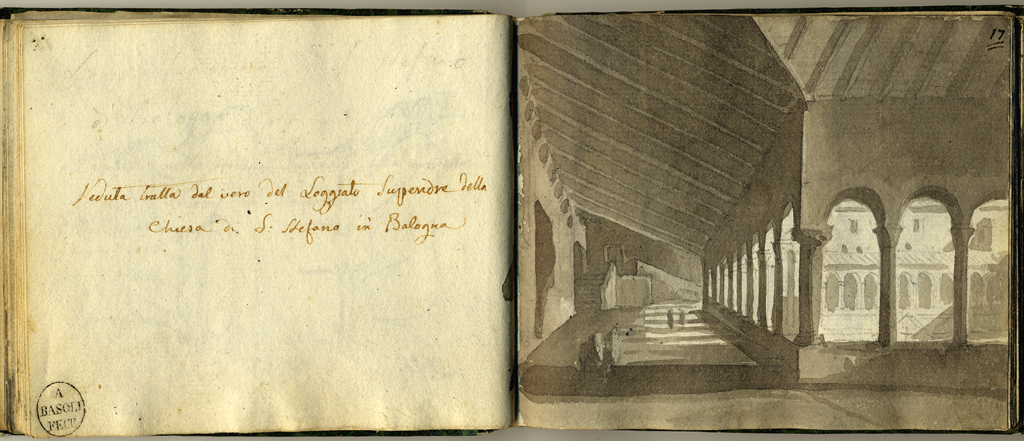 Veduta tratta dal vero del Loggiato Superiore della
Chiesa di S. Stefano in Bologna
A
BASOLI
FECE
17